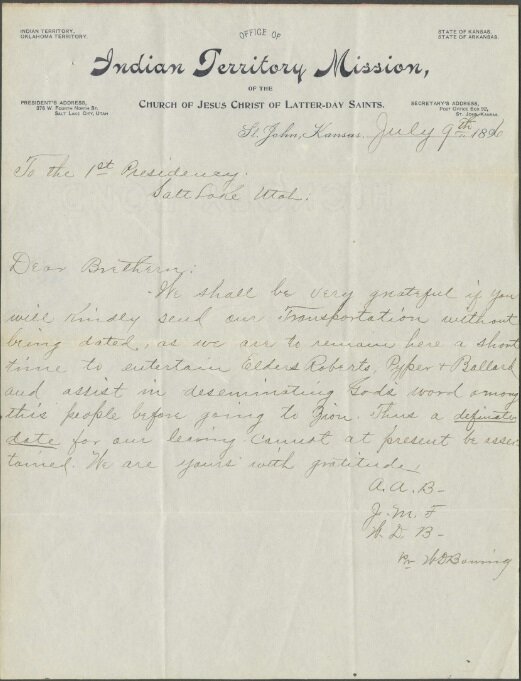 INDIAN TERRITORY,
OKLAHOMA TERRITORY.
OFFICE OF
STATE OF KANSAS,
STATE OF ARKANSAS.
Indian Territory Mission,
OF THE
CHURCH OF JESUS CHRIST OF LATTER-DAY SAINTS.
PRESIDENT'S ADDRESS,
375 W. FOURTH NORTH ST.
SALT LAKE CITY, UTAH
SECRETARY'S ADDRESS,
POST OFFICE BOX 92,
ST. JOHN, KANSAS.
St. John, Kansas, July 9th 1896
To the 1st Presidency.
Salt Lake Utah.
Dear Brethern:
We shall be very grateful if you
will Kindly send our Transportation without
being dated, as we are to remain here a short
time to entertain Elders Roberts, Pyper & Ballard
and assist in deseminating God's word among
this people before going to Zion. Thus a definate
date for our leaving cannot at present be asser
tained. We are yours with gratitude
A. A. B-
J. M. F
W. D. B-
Pr W D Bowring